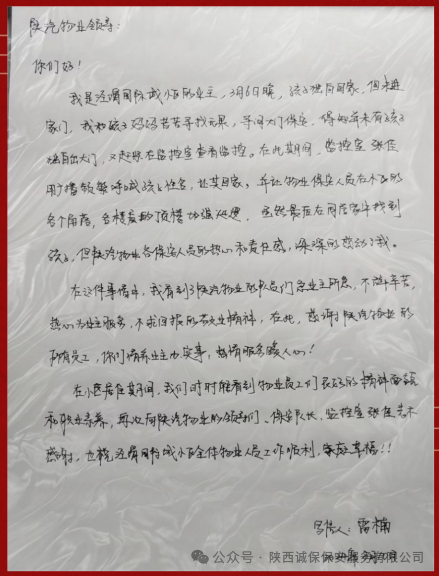 陕汽物业领导:
你们好!
我是泾渭国际城小区的业主,3月6日晚,孩子独自回家,但未进
家门,我和孩子妈妈苦苦寻找无果,寻问大门保安,得知并未有孩子
独自出大门,又赶来在监控室查看监控。在此期间,监控室张佳
用广播频繁呼喊孩子姓名,让其回家,并让物业保安人员在小区的
各个角落,各楼层的顶楼 处。虽然最后在同居家中找到
孩子,但陕汽物业各保安人员的热心和责任感,深深的感动了我。
在这件事情中,我看到了陕汽物业的队员们急业主所急,不辞辛苦,
热心为业主服务,不求回报的 精神,在此,感谢陕汽物业的
所有员工,你们情系业主办实事,热情服务暖人心!
在小区居住期间,我们时时能看到物业员工们良好的精神面貌
和职业素养,再次向陕汽物业的领导们、保安队长,监控室张佳表示
感谢,也祝泾渭国际城小区全体物业人员工作顺利,家庭幸福!!
写信人:雷楠
公众号·陕西诚保保安服务有限公司